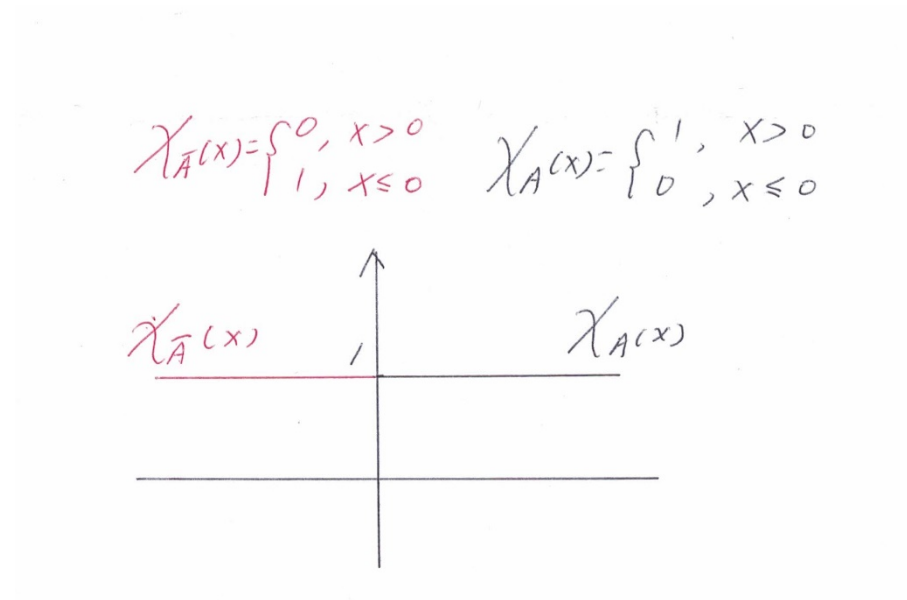 χ_Ā(x)={0, x>0
1, x≤0
χ_A(x)={1, x>0
0, x≤0
χ_Ā(x)
1
χ_A(x)